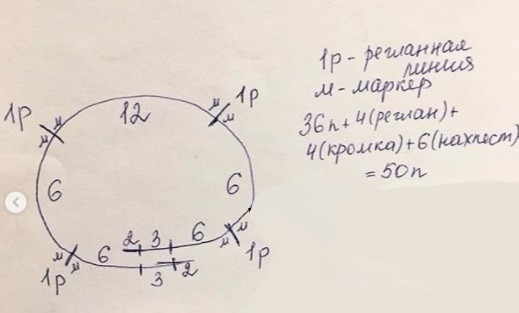 1р - регланная
линия
м - маркер
36п + 4(реглан) +
4(кромка) + 6(нахлест)
= 50п
1р
м м
12
м м
1р
6
6
2 3 6
м м
1р
м м
1р
6
3 2